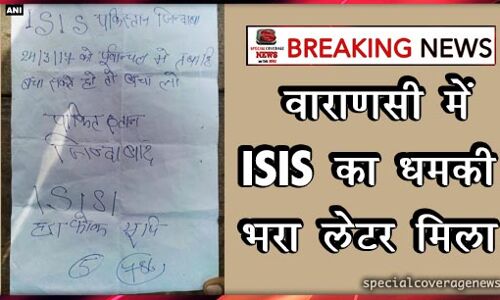 ANI
ISIS पाकिस्तान जिन्दाबाद
24/3/17 को पूर्वान्चल मे तबाही
बचा सकते हो तो बचा लो
पाकिस्तान
जिन्दाबाद
ISIS
5 786
SPECIAL COVERAGE
NEWS
BREAKING NEWS
वाराणसी में
ISIS का धमकी
भरा लेटर मिला
specialcoveragenews